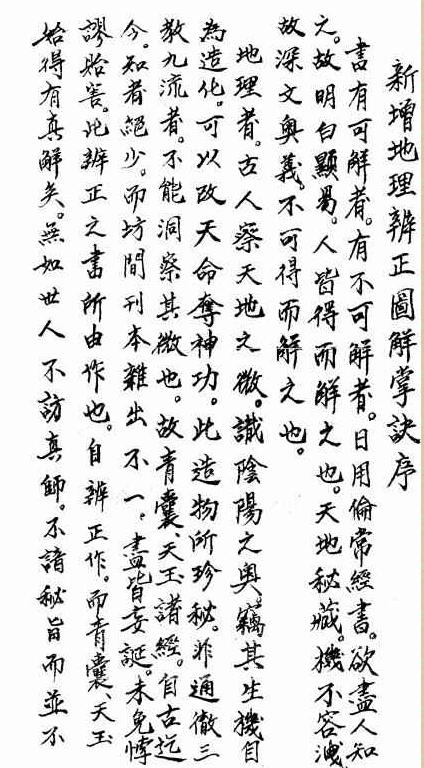 新增地理辨正圖解掌訣序
書有可解者。有不可解者。日用倫常經書。欲盡人知
之。故明白顯易。人皆得而解之也。天地秘藏。機不容洩
故深文奧義。不可得而解之也。
地理者。古人察天地之微。識陰陽之奧。竊其生機自
為造化。可以改天命奪神功。此造物所珍秘。非通徹三
教九流者。不能洞察其微也。故青囊、天玉諸經。自古迄
今。知者絕少。而坊間刊本雜出不一。盡皆妄誕。未免悖
謬貽害。此辨正之書所由作也。自辨正作。而青囊、天玉
始得有真解矣。無如世人不訪真師。不諳秘旨而並不